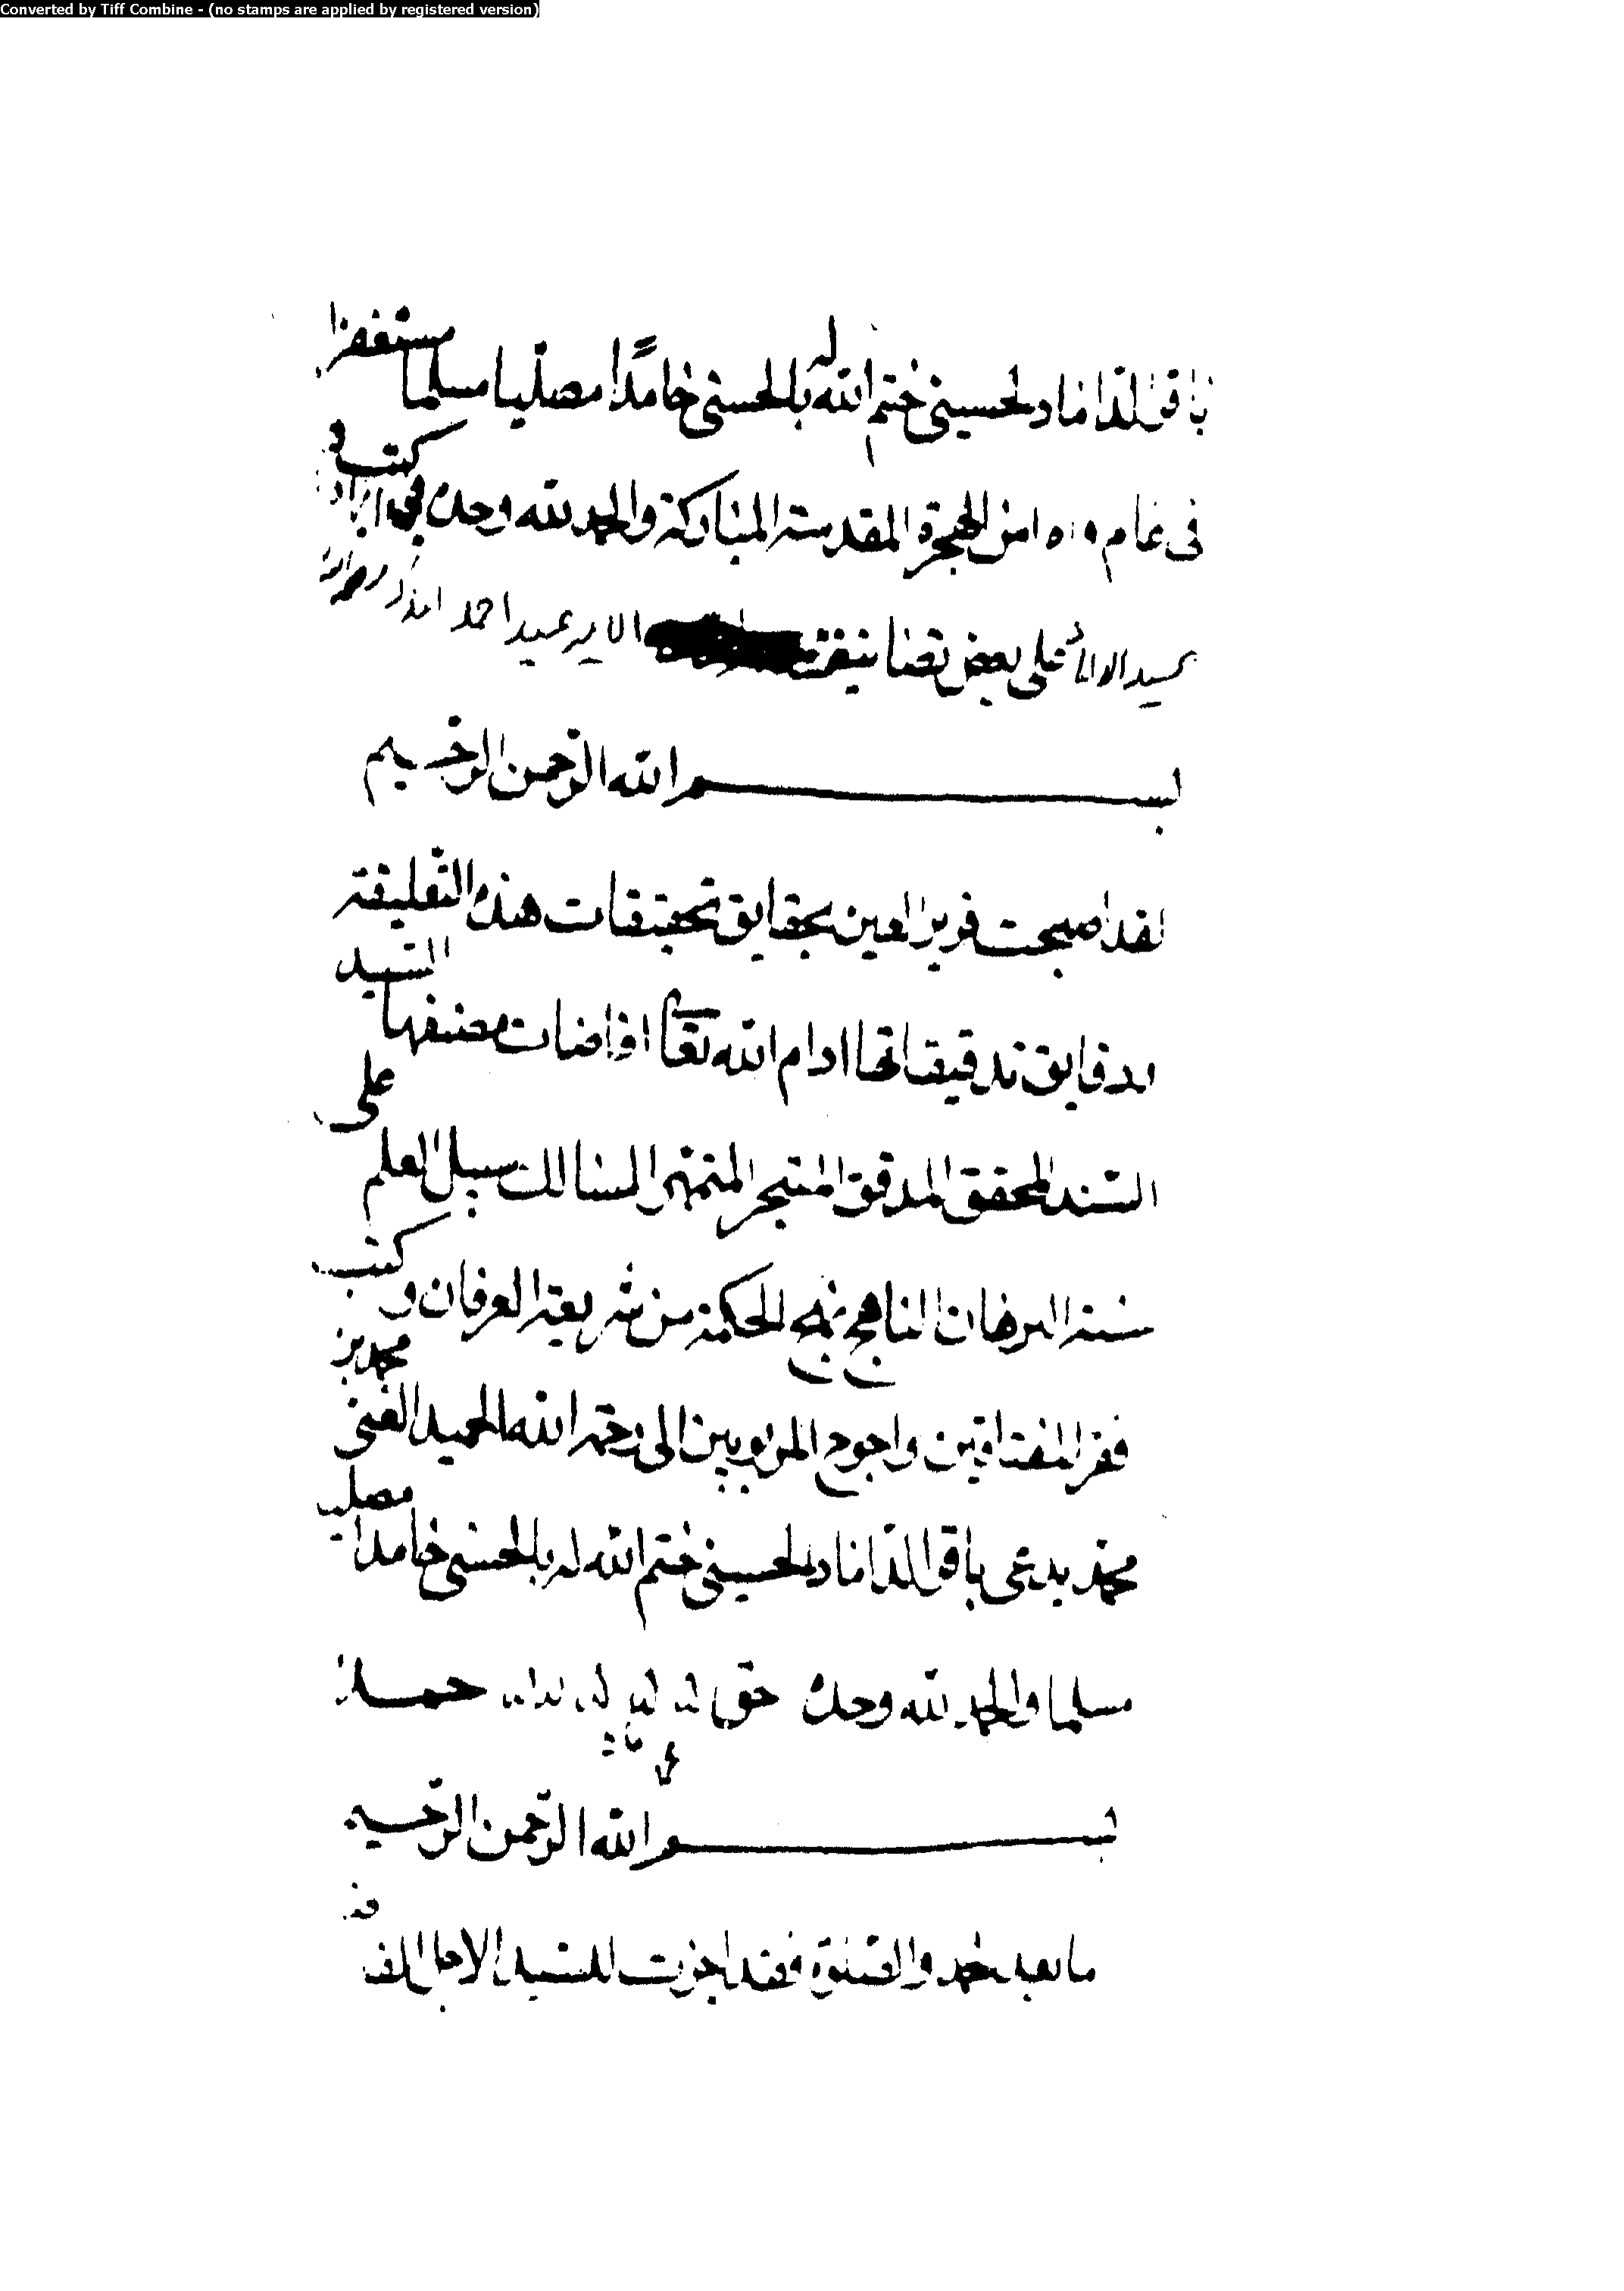 Converted by Tiff Combine - (no stamps are applied by registered version)
باقر الداماد الحسيني ختم الله له بالحسنى حامدًا مصليا مسلما مستغفرا
في عام من الهجرة المقدسة المباركة والحمد لله وحده كتب
على بعض الامير سيد احمد
بسم الله الرحمن الرحيم
لقد اصبحت قرير العين بحقايق تحقيقات هذه التعليقة
ودقايق تدقيقاتها ادام الله تعا افاضات مصنفها السيد
السند المحقق المدقق المتبحر المتمهر السالك سبيل العلم على
سنة البرهان الناهج نهج الحكمة من شريعة العرفان وكتب
فقر المفتاقين واحوج المربوبين الى رحمة الله الحميد الغني محمد بن
محمد يدعى باقر الداماد الحسيني ختم الله له بالحسنى حامدا مصليا
مسلما والحمد لله وحده حق حمده
بسم الله الرحمن الرحيم
ما بعد الحمد والصلوة فقد اجزت للسيد الاجل